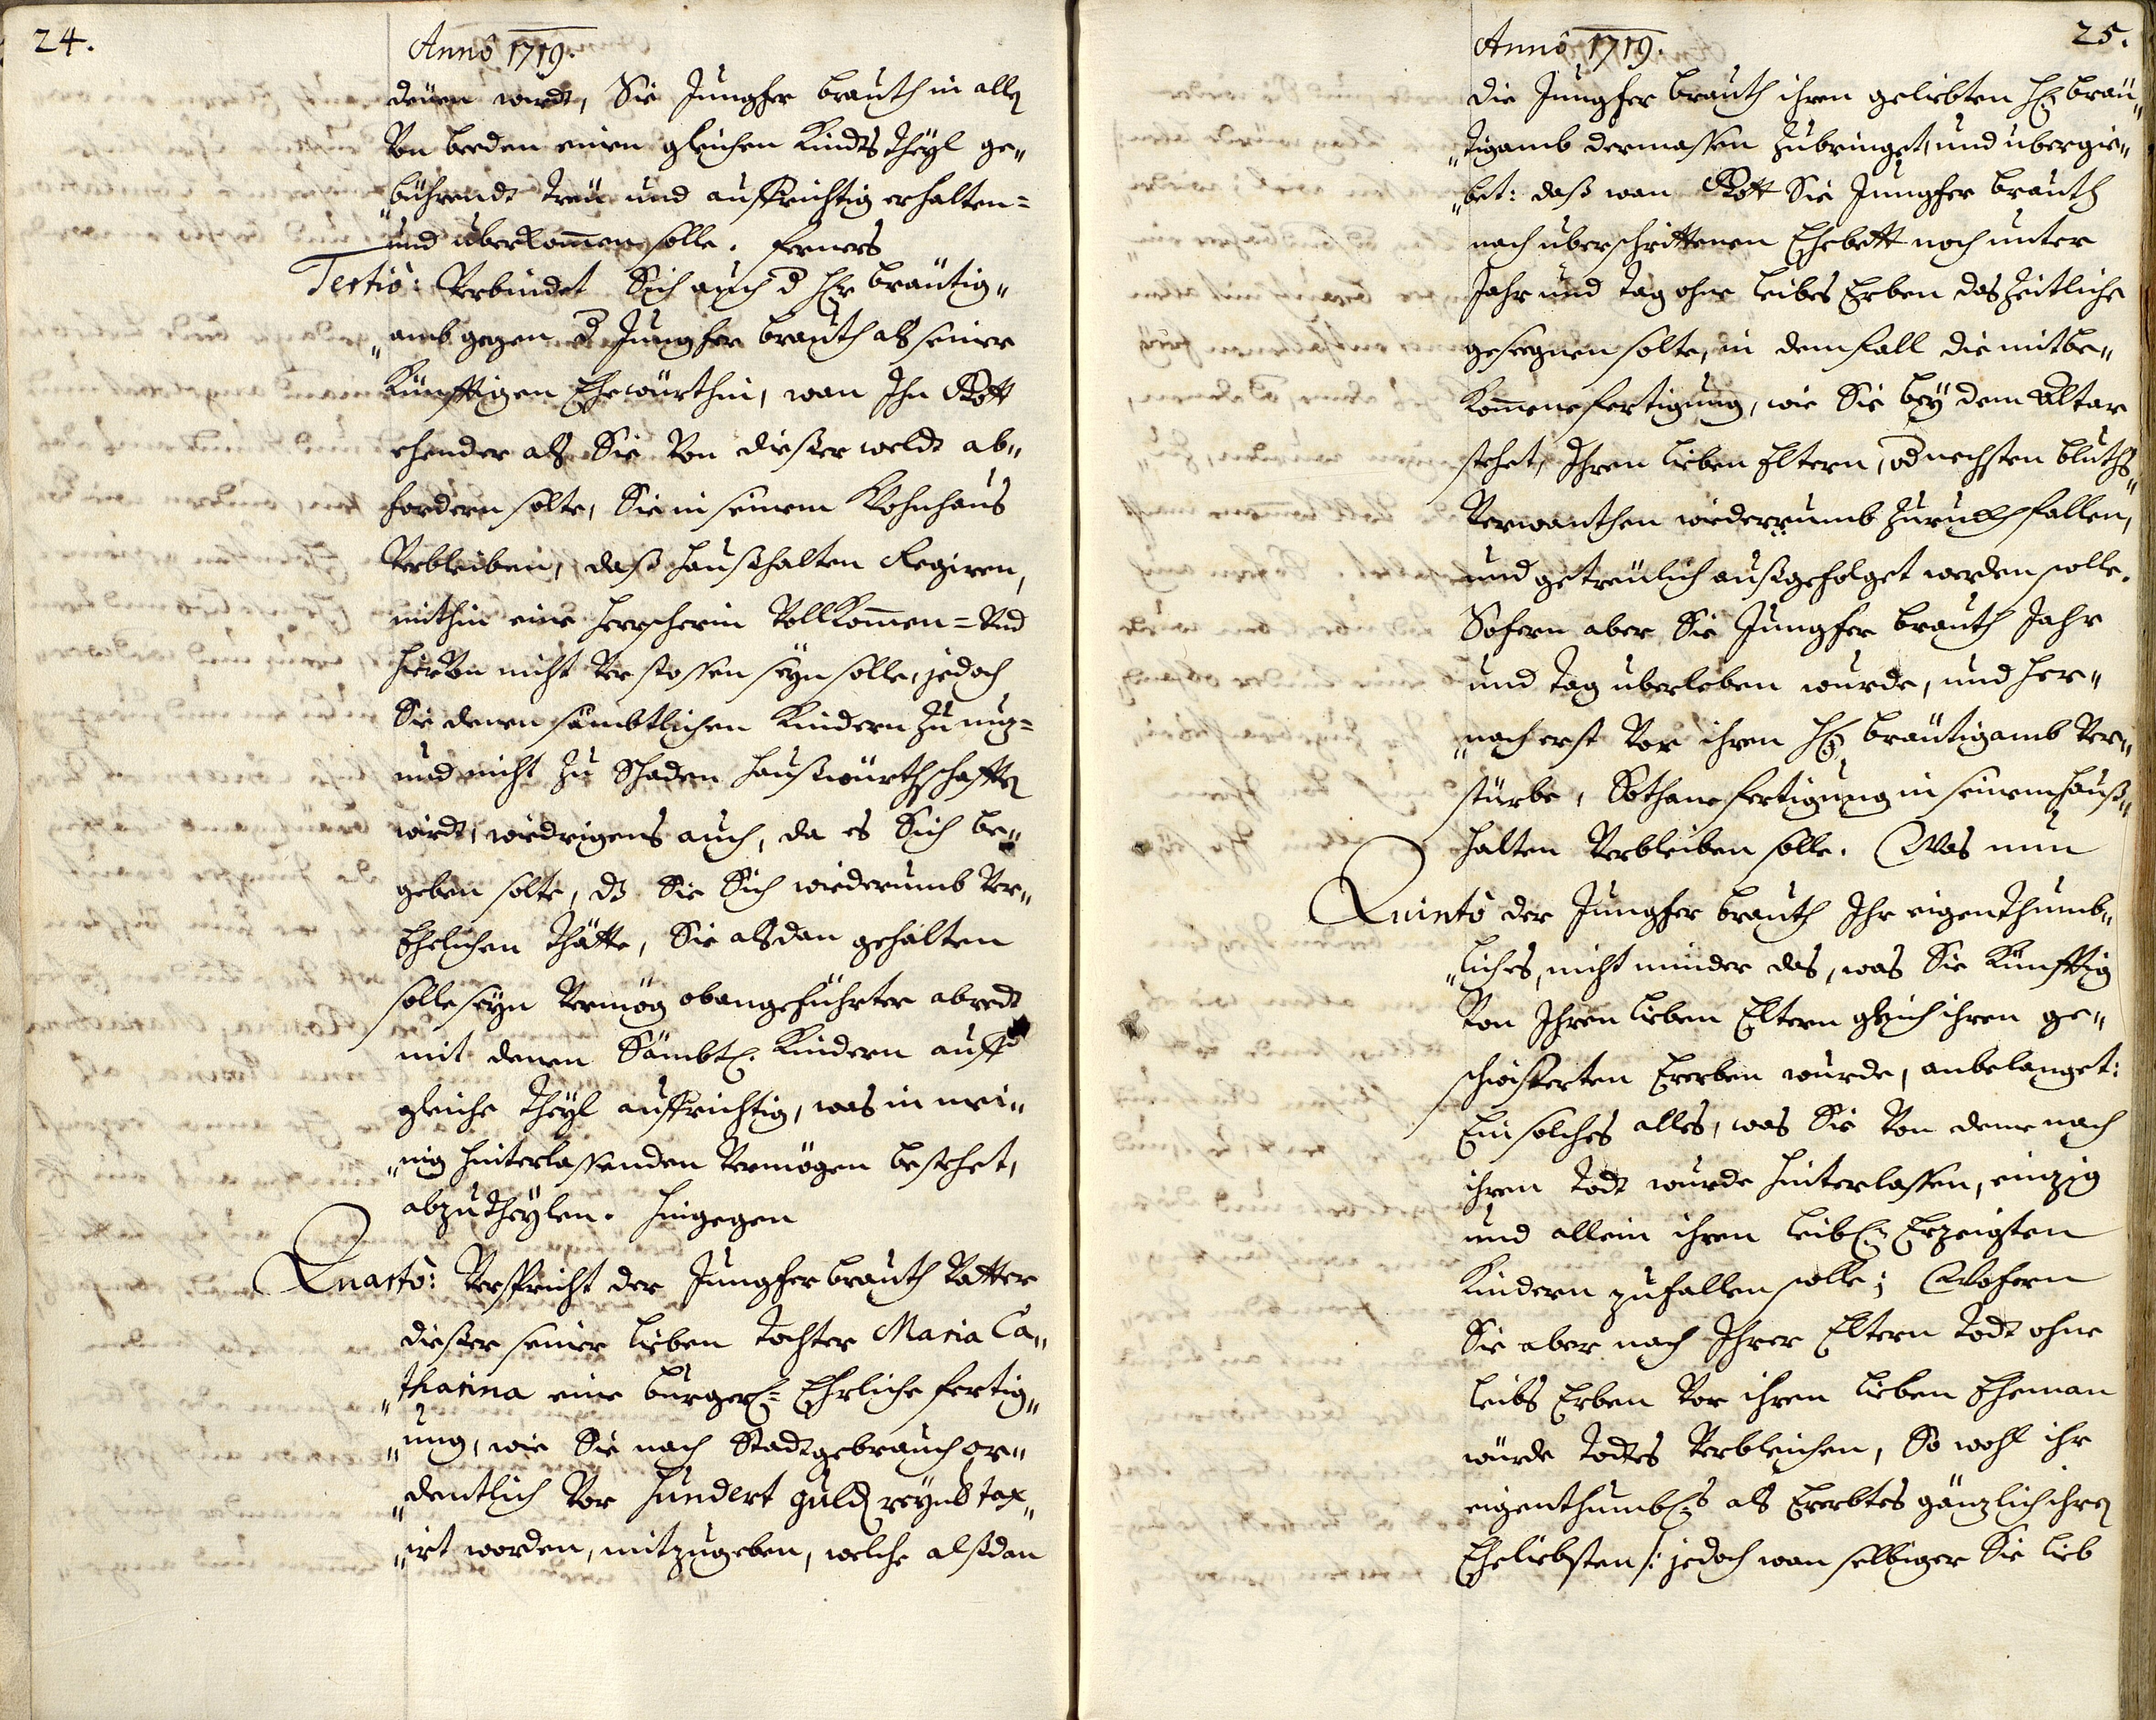 24.
Anno 1719.
denen wirdt, Sie Jungfer brauth in allen
Von beeden einen gleichen Kindts Theyl ge„
„bührendt treu und auffrichtig erhalten=
und uberkommen solle. Ferners
Tertiò: Verbindet Sich auch d. Hr bräutig„
„amb gegen d. Jungfer brauth alß seiner
Künfftigen Ehewürthin, wan Ihn Gott
ehender alß Sie Von dießer weldt ab„
fordern solte, Sie in seinem Wohnhaus
Verbleiben, daß haußhalten Regiren,
mithin eine herscherin Vollkommen= Und
hievon nicht Verstossen seyn solle, jedoch
Sie denen sämbtlichen Kindern zu nuz=
und nicht zu Schaden haußwürthschafften
wirdt, wiedrigens auch, da es Sich be„
geben solte, dz Sie Sich wiederumb Ver„
Ehelichen thätte, Sie alßdan gehalten
solle seyn Vermög obangeführter abredt
mit denen Sämbtl: Kindern auff
gleiche Theyl auffrichtig, was in wei„
„nig hinterlassenden Vermögen bestehet,
abzutheylen. Hingegen
Quartò: Verspricht der Jungfer brauth Vatter
dießer seiner lieben Tochter Maria Ca„
„tharina eine burgerl= Ehrliche fertig„
„ung, wie Sie nach Stadtgebrauch or„
„dentlich Vor hundert guld reynß tax„
„irt worden, mitzugeben, welche alßdan
25.
Anno 1719.
die Jungfer brauth ihren geliebten Hen bräu„
„tigamb dermassen zubringet, und ubergie„
„bet: daß wan Gott Sie Jungfer brauth
nach uberschrittenen Ehebett noch unter
Jahr und tag ohne leibes Erben das Zeitliche
gesegnen solte, in dem fall die mitbe„
kommene fertigung, wie Sie bey dem Altar
stehet, Ihren lieben Eltern, od nechsten bluths„
Verwanthen wiederumb zuruckh fallen,
und getreulich außgefolget werden solle.
Sofern aber Sie Jungfer brauth Jahr
und tag uberleben wurde, und her„
„nach erst Vor ihren Hen bräutigamb Ver„
stürbe, Sothane fertigung in seinem hauß„
halten Verbleiben solle. Was nun
Quintò der Jungfer brauth Ihr eigenthumb„
„liches, nicht minder das, was Sie Künfftig
Von Ihren lieben Eltern gleich ihren ge„
schwisterten Ererben wurde, anbelanget:
Ein solches alles, was Sie Von deme nach
ihrem Todt wurde hinterlassen, einzig
und allein ihren leibl: Erzeigten
Kindern zufallen solle; Wofern
Sie aber nach Ihrer Eltern Todt ohne
leibs Erben Vor ihren lieben Eheman
würde Todtes Verbleichen, So wohl ihr
eigenthumbl:s als Ererbtes gänzlich ihren
Eheliebsten /: jedoch wan selbiger Sie lieb